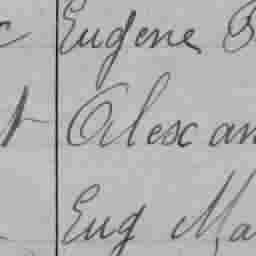 Eugene
Alexan
Eug Ma